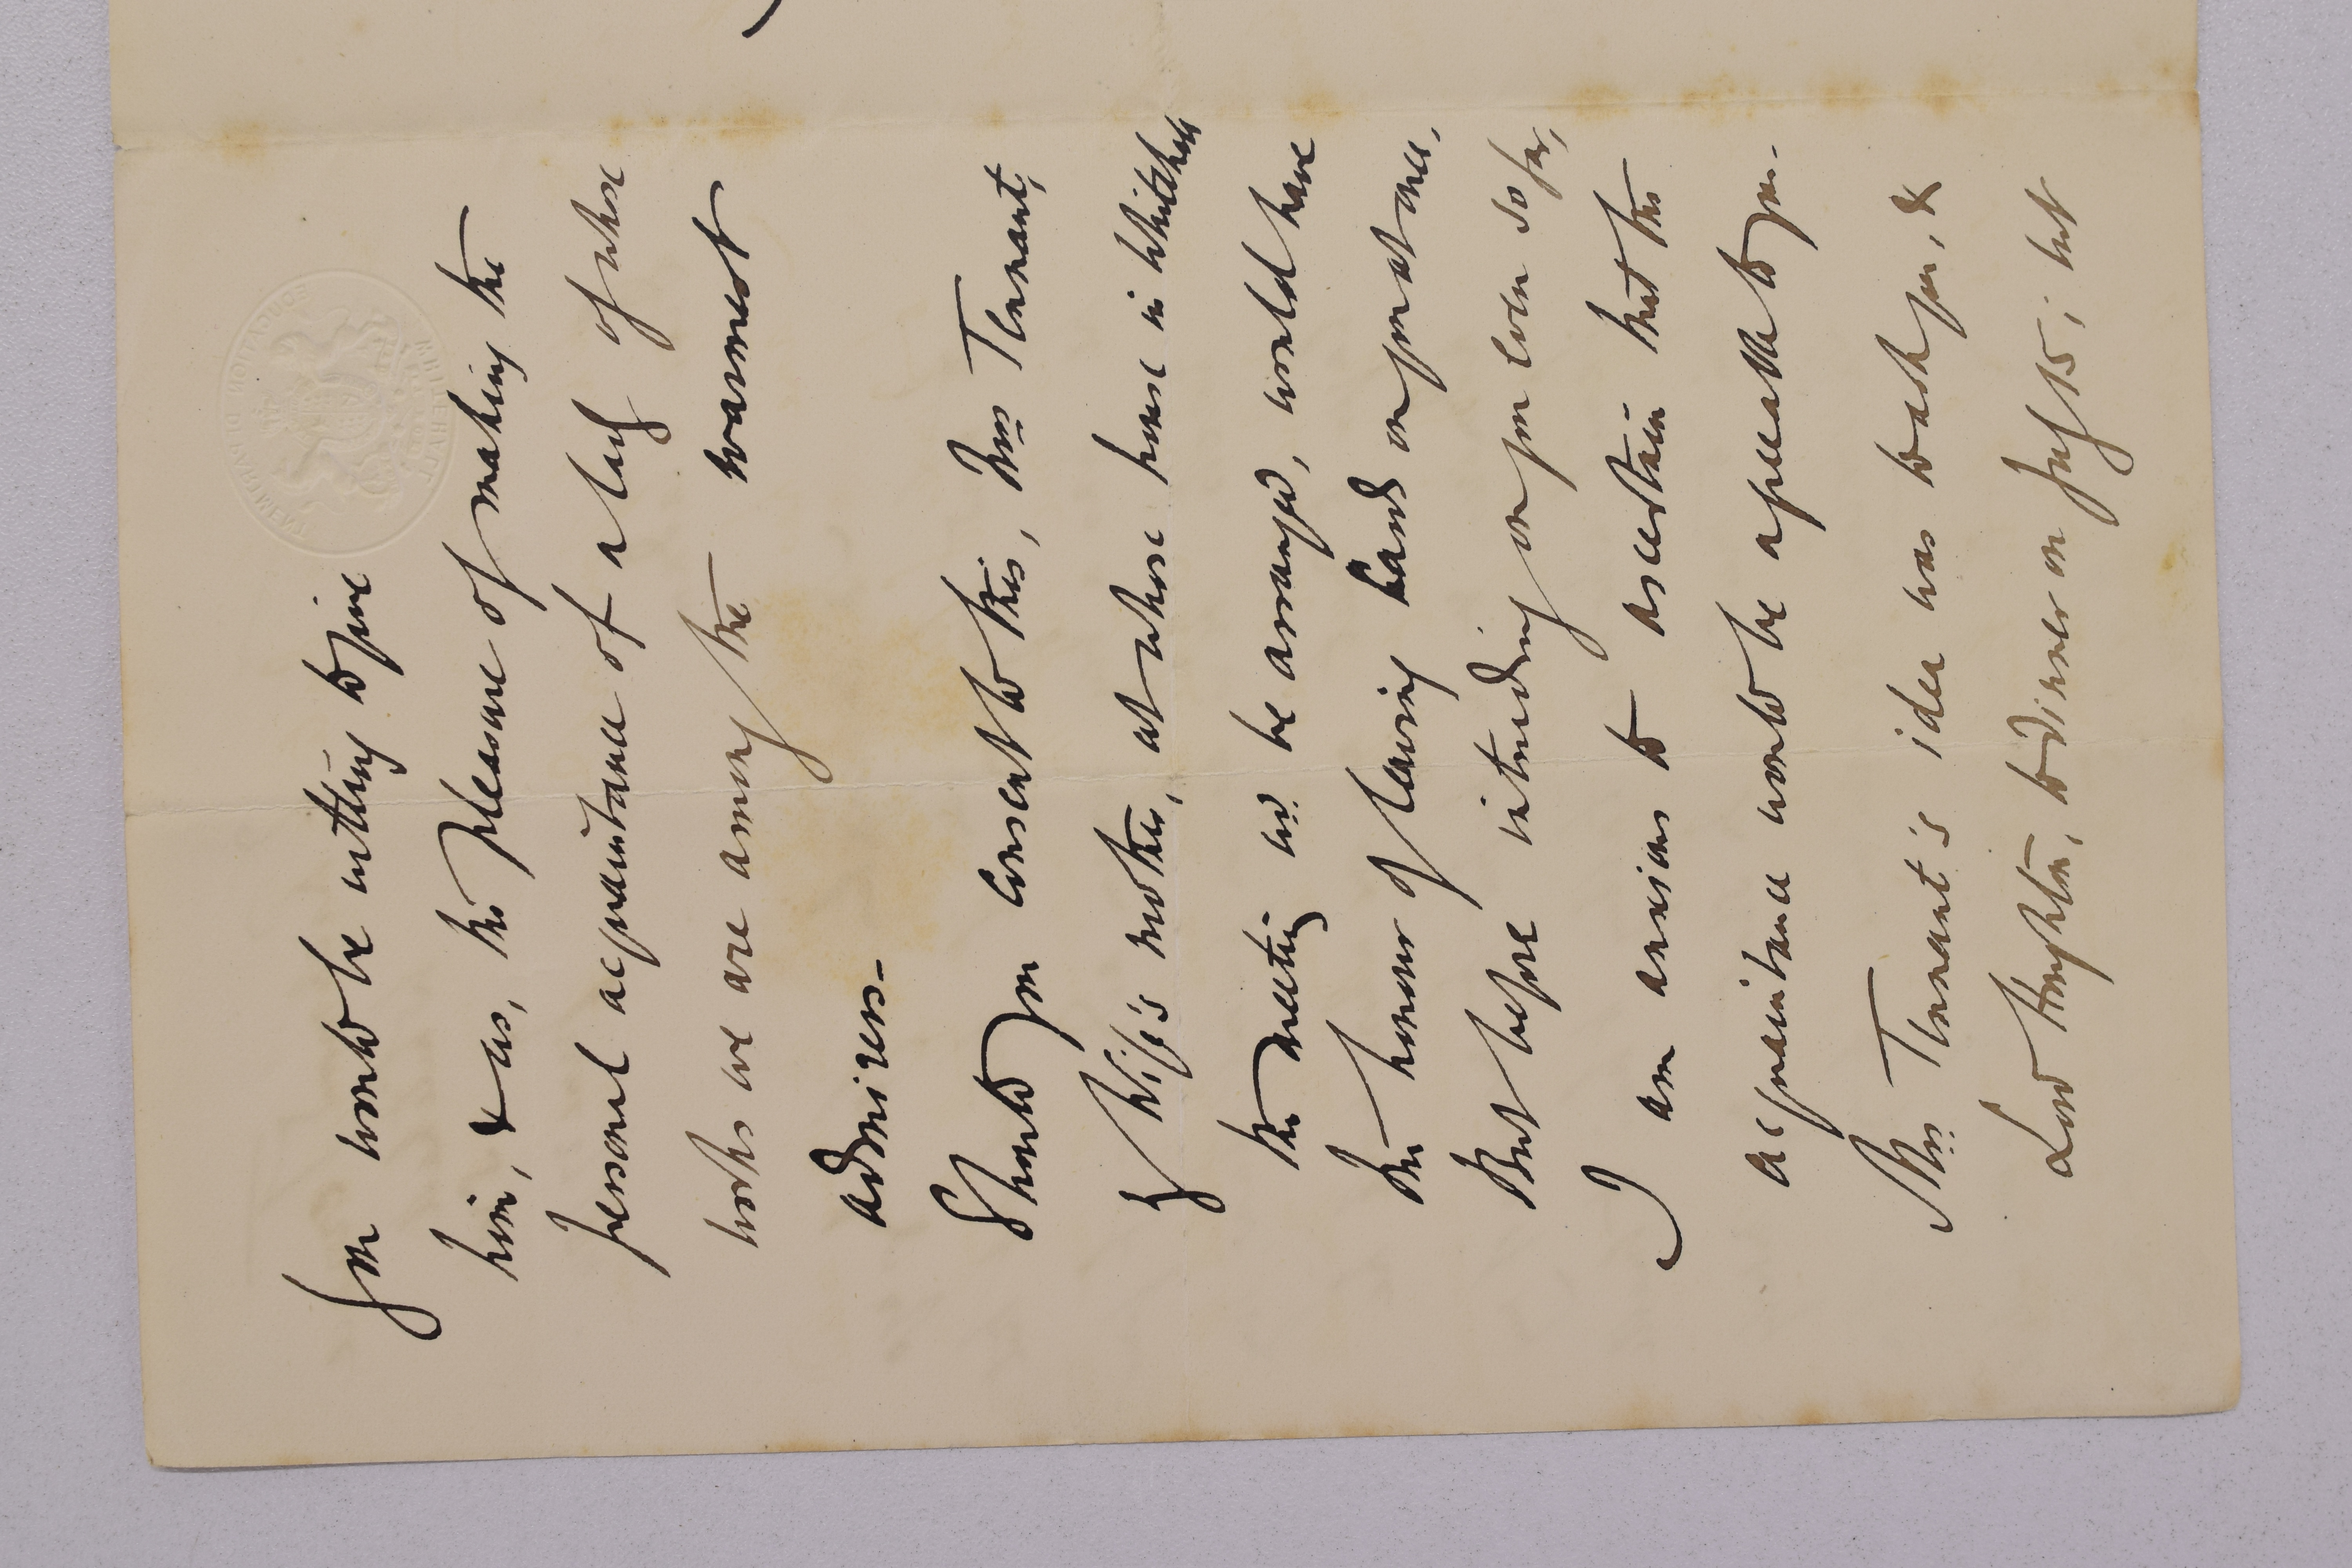 EDUCATION DEPARTMENT
PRIVATE
you would be willing to give
him, & us, the pleasure of making the
personal acquaintance of a lady of whose
works we are among the warmest
admirers.
Should you consent to this, Mrs Tennant,
my Wife's mother, at whose house in Whitehall
the meeting wd. be arranged, would have
the honour of leaving cards on you at once.
But before intruding on you even so far,
I am anxious to ascertain that the
acquaintance would be agreeable to you.
Mrs Tennant's idea was to ask you, &
Lord Houghton, to dinner on July 15; but